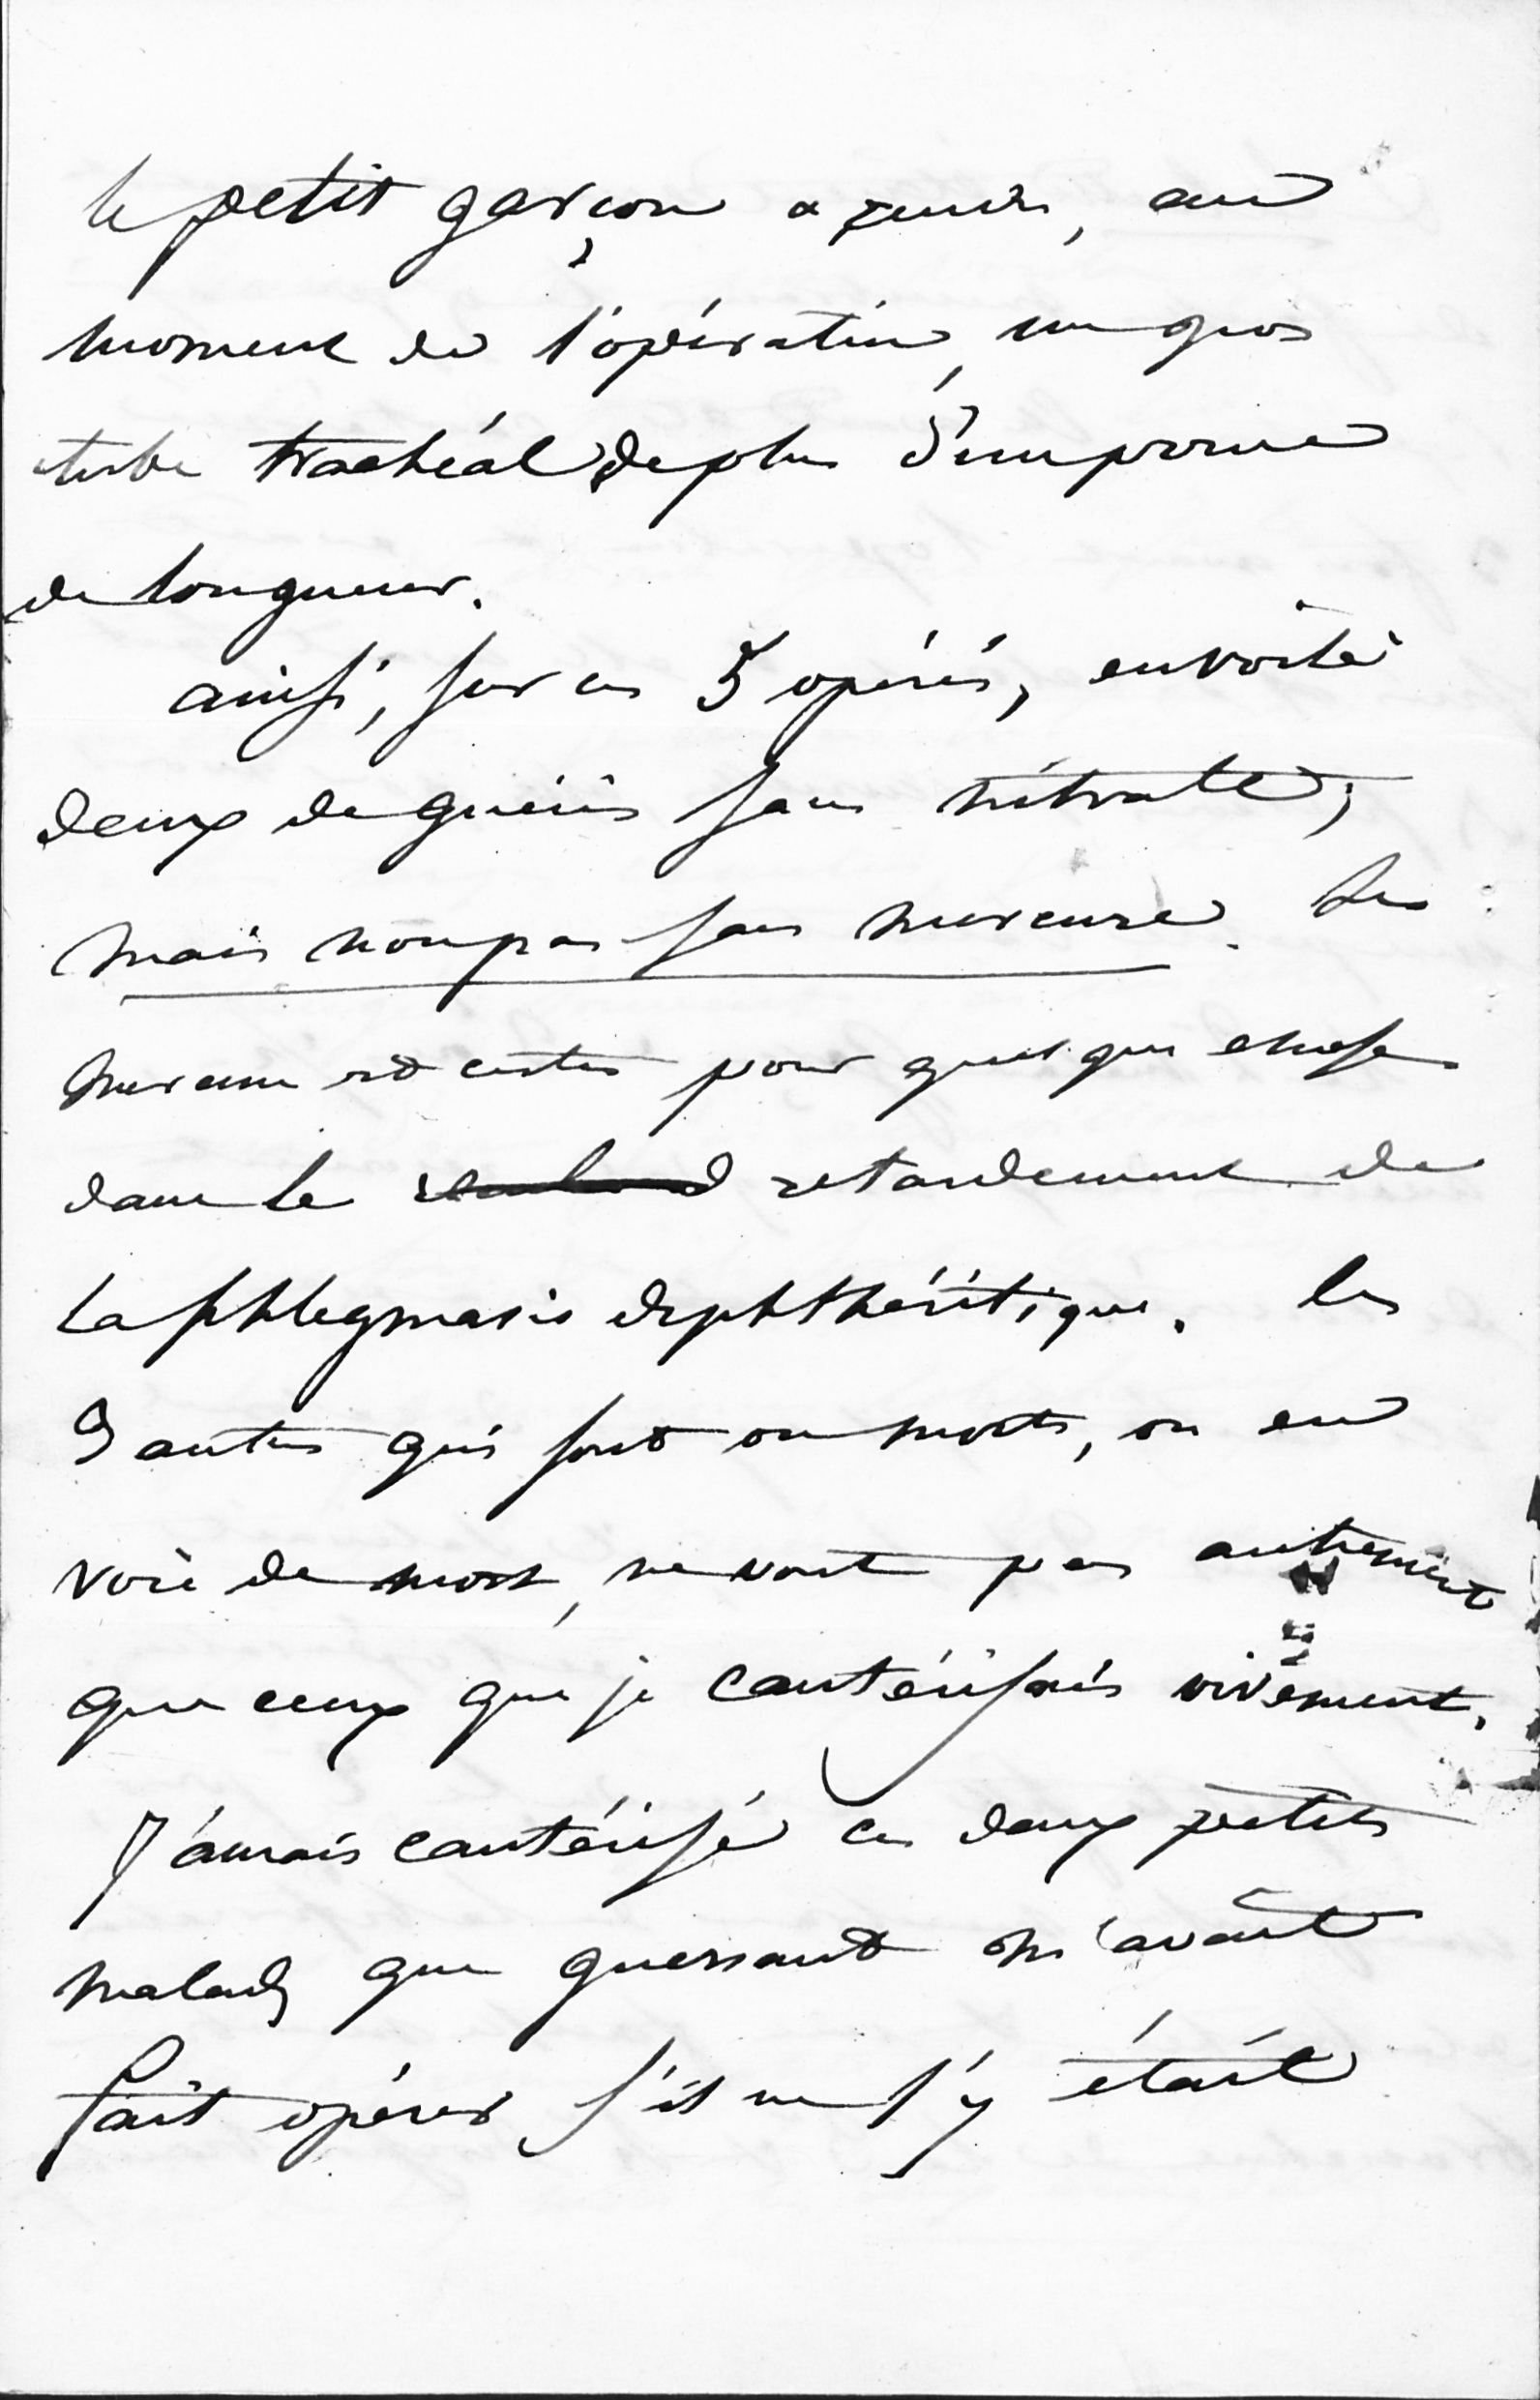 le petit garçon a rendu, au
moment de l'opération, un gros
tube trachéal de plus d'un pouce
de longueur.
ainsi, sur ces 5 opérés, en voilà
deux de guéris sans nitrate,
mais non pas sans mercure. Le
mercure est certes pour quelque chose
dans le retardement de
la phlegmasie diphthéritique. les
3 autres qui sont ou morts, ou en
voie de mort, ne vont pas autrement
que ceux que je cautérisais vivement.
J'aurais cautérisé ces deux petits
malades que guersant m'avait
fait opérer s'il ne s'y était